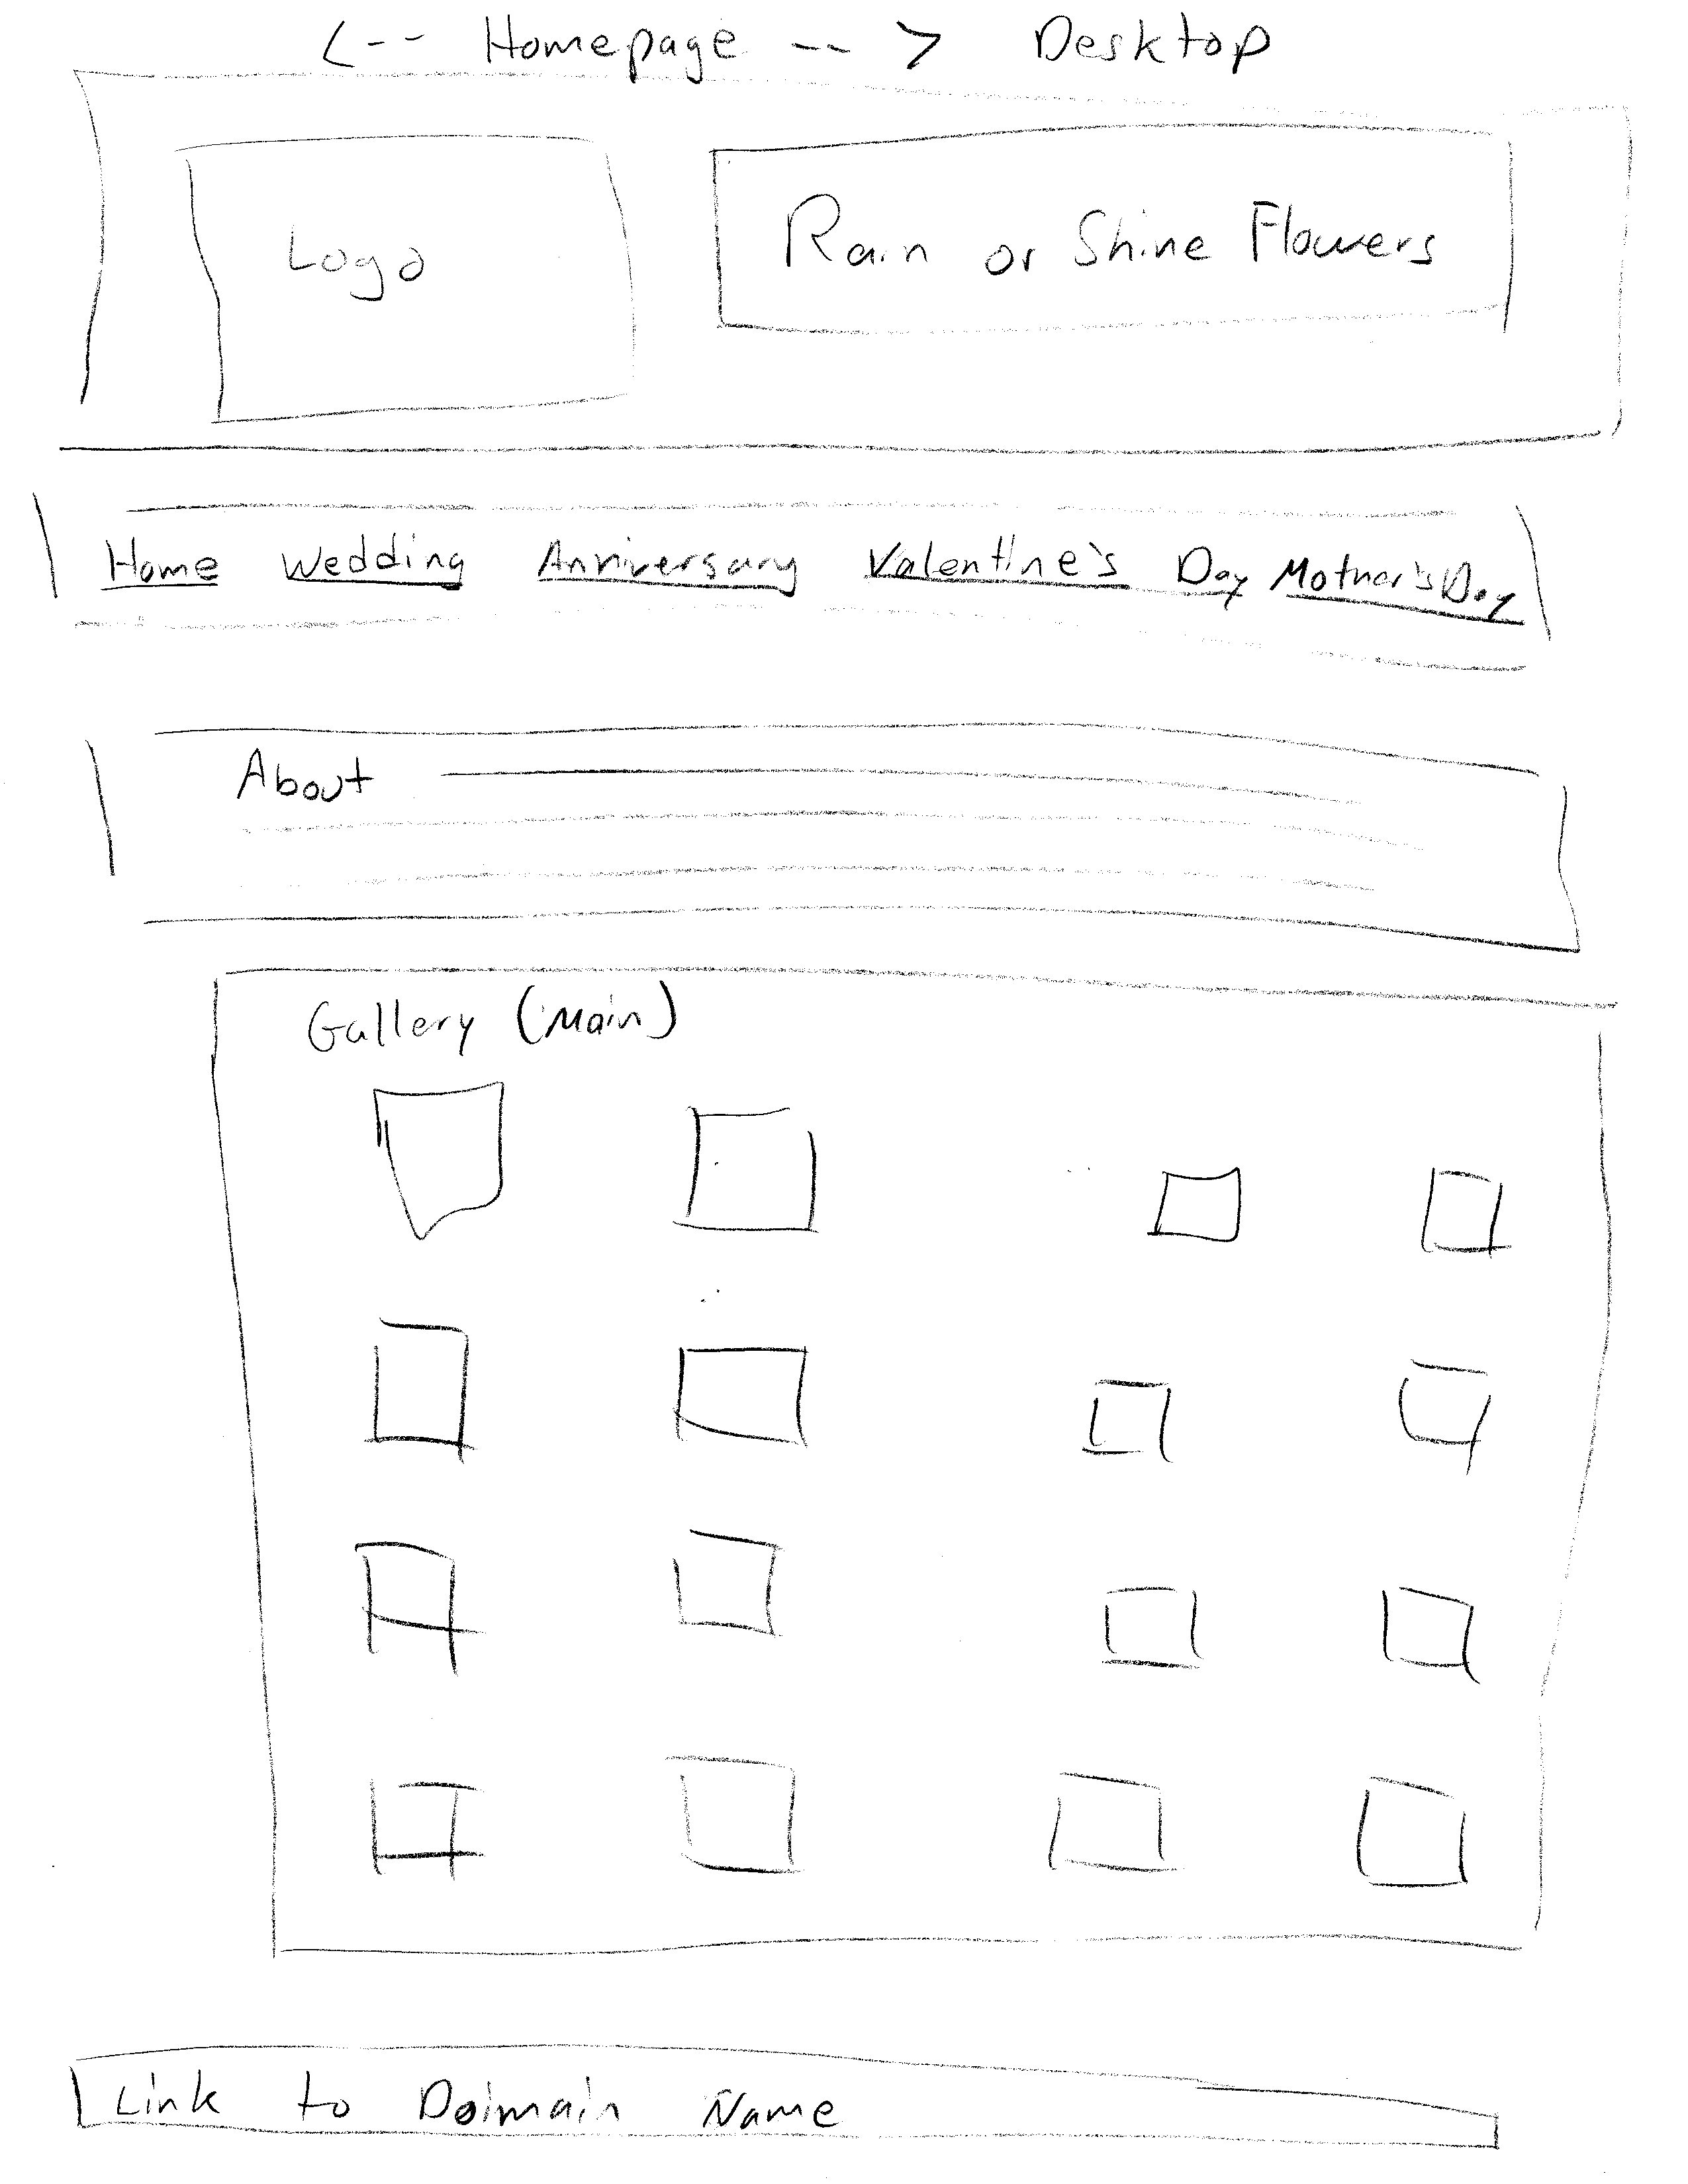 <-- Homepage --> Desktop
Logo
Rain or Shine Flowers
Home Wedding Anniversary Valentine's Day Mother's Day
About
Gallery (Main)
Link to Doimain Name